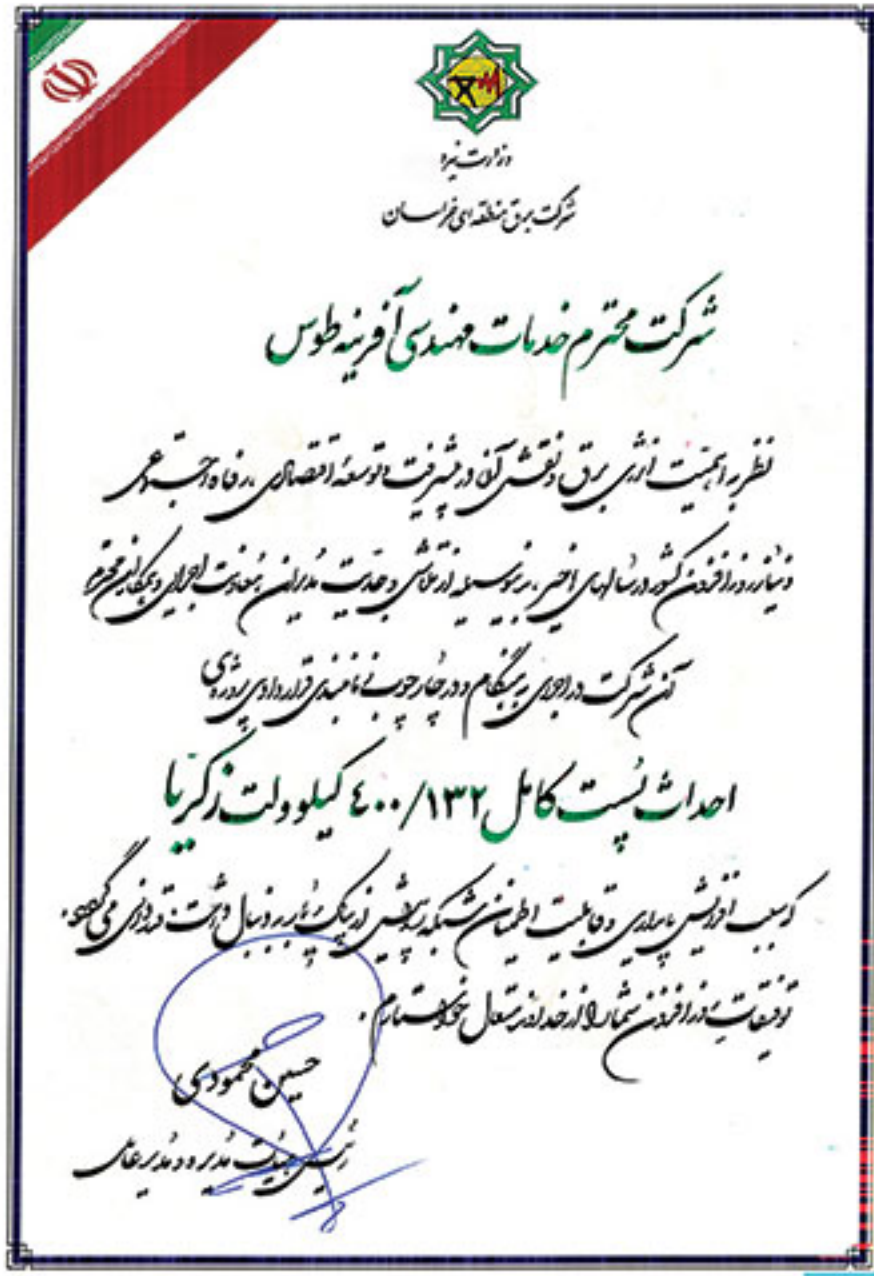 وزارت نیرو
شرکت برق منطقه ای خراسان
شرکت محترم خدمات مهندسی آفرینه طوس
نظر به اهمیت انرژی برق و نقش آن در پیشرفت و توسعه اقتصادی، رفاه اجتماعی
و نیاز روز افزون کشور در سالهای اخیر، بدینوسیله از تلاش و جدیت مدیران، معاونت اجرایی و همکاران محترم
آن شرکت در اجرای به هنگام و در چارچوب زمانبندی قراردادی پروژه ی
احداث پست کامل ۴۰۰/۱۳۲ کیلو ولت زکریا
که سبب افزایش پایداری و قابلیت اطمینان شبکه پوشش از پیک بار را بدنبال داشت قدردانی می گردد.
توفیقات روز افزون شما را از خداوند متعال خواستارم.
حسین محمودی
رئیس هیئت مدیره و مدیر عامل